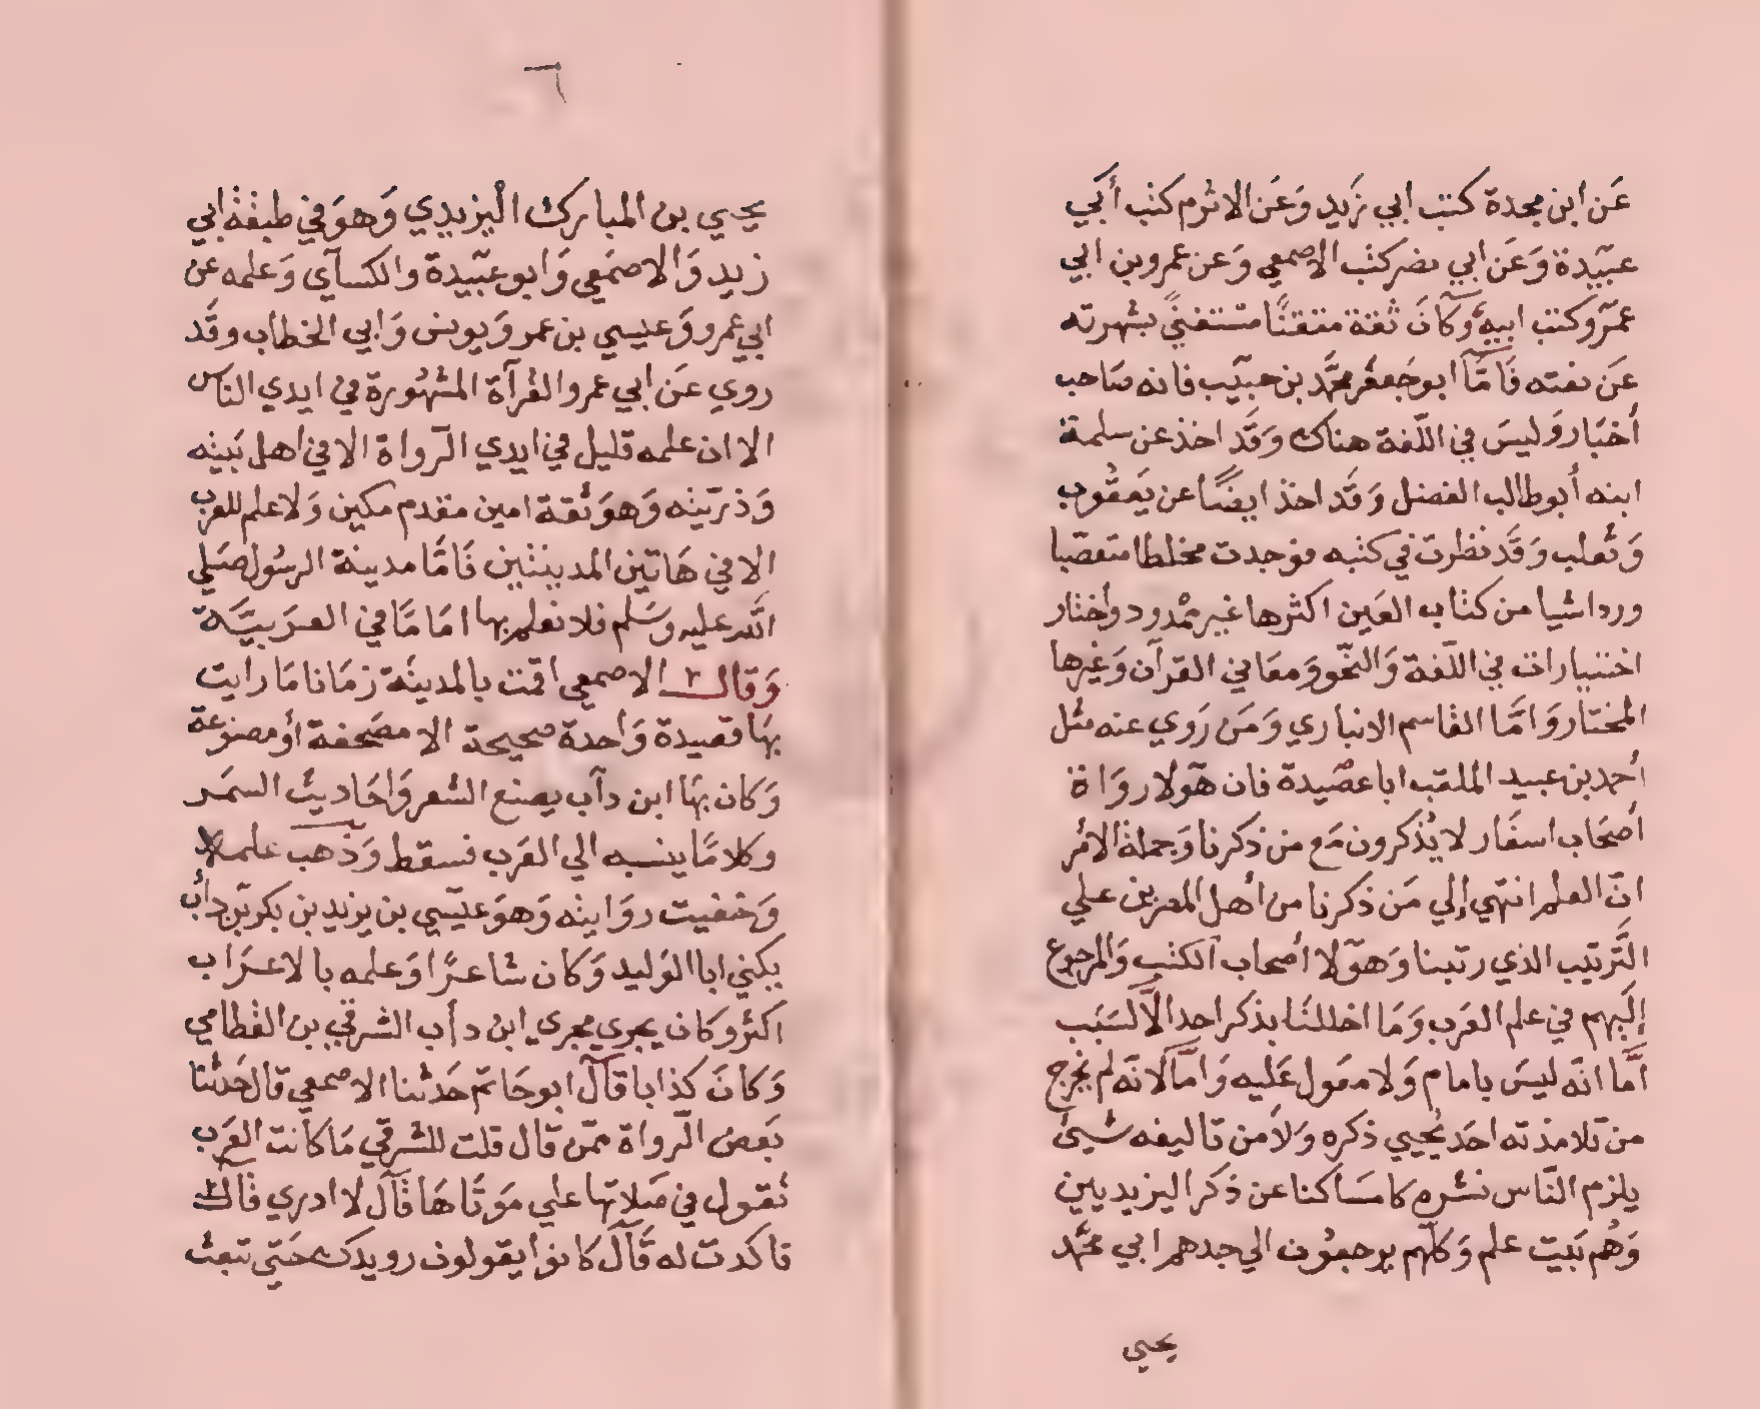 عَن ابن مجدة كتب ابي زَيد وَعَن الاثرم كتب أبي
عبَيدة وَعَن ابي نصر كتب الاصمعي وَعن عمرو بن ابي
عمرو كتب ابيه وَكانَ ثقة متقنًا مستغنيً بشهرته
عَن نعته فَامّا ابو جَعفر محمَّد بن حبيَب فانه صَاحب
أخبَار وَليسَ في اللّغة هناك وَقَد اخذ عن سلمة
ابنه أبو طالب الفضل وَقَد اخذ ايضًا عن يَعقُوب
وَثعلب وَقَد نظرت في كتبه فوَجدت مخلطا متعصّبا
ورد اشيا من كتاب العَين اكثرها غير مرْدود وأختار
اختيارات في اللّغة وَالنحّو وَمعَاني القرآن وَغيرها
المختار وَامّا القاسم الانباري وَمَن رَوي عنه مثل
أحمد بن عبيد الملقب ابا عصَيدة فان هَولا روَاة
أصحَاب اسفَار لا يُذكرون مَع من ذكرنا وَجملة الامْر
انّ العلم انتهي إلي مَن ذكرنا من أهل المصرين علي
التَّرتيَب الذي رتبنا وَهوَلا أصحاب الكتب وَالمرجوع
إلَيهم في علم العَرب وَمَا اخللنَا بذكر احد الاّ لسَبَب
امَّا انّه ليسَ بامام وَلا معَول عَليه وَامّا لانّه لم يخرج
من تلامذته احَد يُحيي ذكره وَلا من تاليفه شيئ
يلزم النّاس نشره كامسَاكنا عن ذكر اليزيديين
وَهُم بَيت علم وَكلّهم يرجعُون الي جدهم ابي محمّد
يحيي
٦
يحيي بن المبارك اليَزيدي وَهوَ في طبقة ابي
زيد وَالاصمَعي وَابو عبَيدة والكسآي وَعلمه عن
ابي عمرو وَعيسي بن عمر وَيونس وَابي الخطاب وقَد
روي عَن ابي عمرو القرآة المشهُورة في ايدي الناس
الا ان علمه قليل في ايدي الرّواة الا في اهل بَيته
وَذرّيته وَهوَ ثقة امين مقدم مكين وَلا علم للعرب
الا في هَاتين المدينتين فَامَّا مدينة الرسُول صَلي
الله عليه وسَلم فلا نعلم بها امَامًا في العرَبيَّة
وَقال الاصمعي اقمت بالمدينَة زمَانا مَا رايت
بهَا قصيدة وَاحدة صحيحة الا مصَحفة أو مصنوعة
وَكان بهَا ابن دآب يصنع الشعر وَاحَاديث السمَر
وكلامًا ينسبه الي العَرب فسقط وَذهب علمه
وَخفيت روَايته وَهوَ عيَسي بن يزيد بن بكر بن دأب
يكني ابا الوَليد وَكان شاعرًا وَعلمه بالاعرَاب
اكثر وكان يجري مجري ابن دأب الشرقي بن القطامي
وَكانَ كذابا قالَ ابو حَاتم حَدثنا الاصمعي قال حَدثنا
بَعض الرّواة ممّن قال قلت للشرقي مَا كانت العَرب
تقول في صَلاتها علي مَوتَاهَا قَالَ لا ادري قَال
فاكدت له قَالَ كانوا يقولون رويدك حَتي تبعث